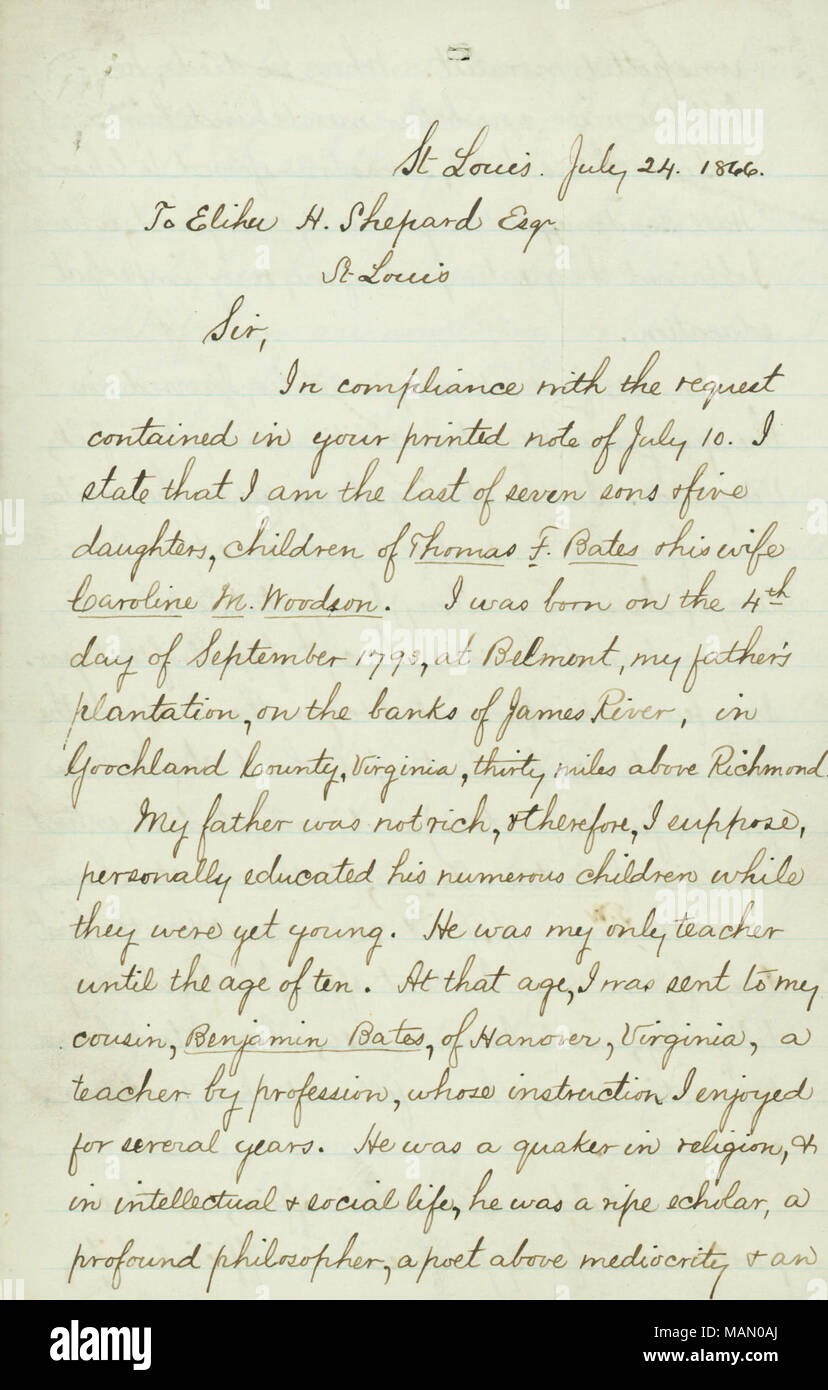 St Louis. July 24. 1866.
To Elihu H. Shepard Esqr.
St Louis
Sir,
In compliance with the request
contained in your printed note of July 10. I
state that I am the last of seven sons & five
daughters, children of Thomas F. Bates & his wife
Caroline M. Woodson. I was born on the 4th
day of September 1793, at Belmont, my father's
plantation, on the banks of James River, in
Goochland County, Virginia, thirty miles above Richmond.
My father was not rich, & therefore, I suppose,
personally educated his numerous children while
they were yet young. He was my only teacher
until the age of ten. At that age, I was sent to my
cousin, Benjamin Bates, of Hanover, Virginia, a
teacher by profession, whose instruction I enjoyed
for several years. He was a quaker in religion, &
in intellectual & social life, he was a ripe scholar, a
profound philosopher, a poet above mediocrity & an
alamy
alamy
Image ID: MAN0AJ
www.alamy.com